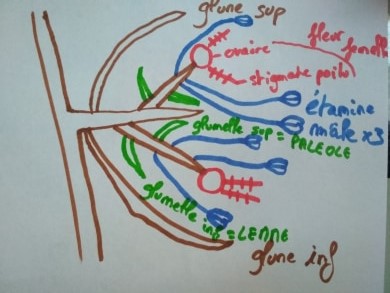 glune sup
fleur femelle
ovaire
stigmate poilu
étamine
mâle x3
glumelle sup = PALEOLE
glumelle inf = LEMNE
glune inf